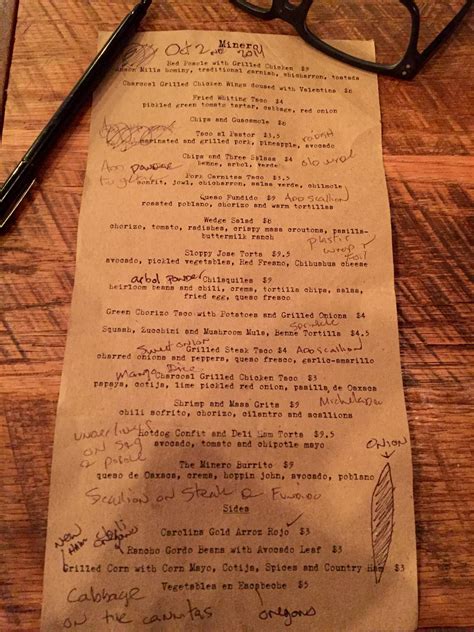 Minero
Oct 2nd 2014
Red Pozole with Grilled Chicken $9
Anson Mills hominy, traditional garnish, chicharron, tostada
Charcoal Grilled Chicken Wings doused with Valentina $8
Fried Whiting Taco $4
pickled green tomato tartar, cabbage, red onion
Chips and Guacamole $8
Taco al Pastor $3.5
marinated and grilled pork, pineapple, avocado
radish
Chips and Three Salsas $4
benne, arbol, verde
powder
Pork Carnitas Taco $3.5
confit, jowl, chicharron, salsa verde, chilmole
Queso Fundido $9 Add scallion
roasted poblano, chorizo and warm tortillas
Wedge Salad $8
chorizo, tomato, radishes, crispy masa croutons, pasilla-
buttermilk ranch
plastic
wrap
foil
Sloppy Jose Torta $9.5
avocado, pickled vegetables, Red Fresno, Chihuahua cheese
arbol powder
Chilaquiles $9
heirloom beans and chili, crema, tortilla chips, salsa,
fried egg, queso fresco
Green Chorizo Taco with Potatoes and Grilled Onions $4
Squash, Zucchini and Mushroom Mula, Benne Tortilla $4.5
Sweet onion
Grilled Steak Taco $4 Add scallion
charred onions and peppers, queso fresco, garlic-amarillo
Mango Dice
Charcoal Grilled Chicken Taco $3
papaya, cotija, lime pickled red onion, pasilla de Oaxaca
Shrimp and Masa Grits $9
chili sofrito, chorizo, cilantro and scallions
Michelada
Hotdog Confit and Deli Ham Torta $9.5
avocado, tomato and chipotle mayo
underlines
on
ONION
The Minero Burrito $9
queso de Oaxaca, crema, hoppin john, avocado, poblano
Scallion on Steak & Fundido
Sides
Carolina Gold Arroz Rojo $3
new
oregano
Rancho Gordo Beans with Avocado Leaf $3
Grilled Corn with Corn Mayo, Cotija, Spices and Country Ham $3
Vegetables en Escabeche $3
Cabbage
on the carnitas
oregano